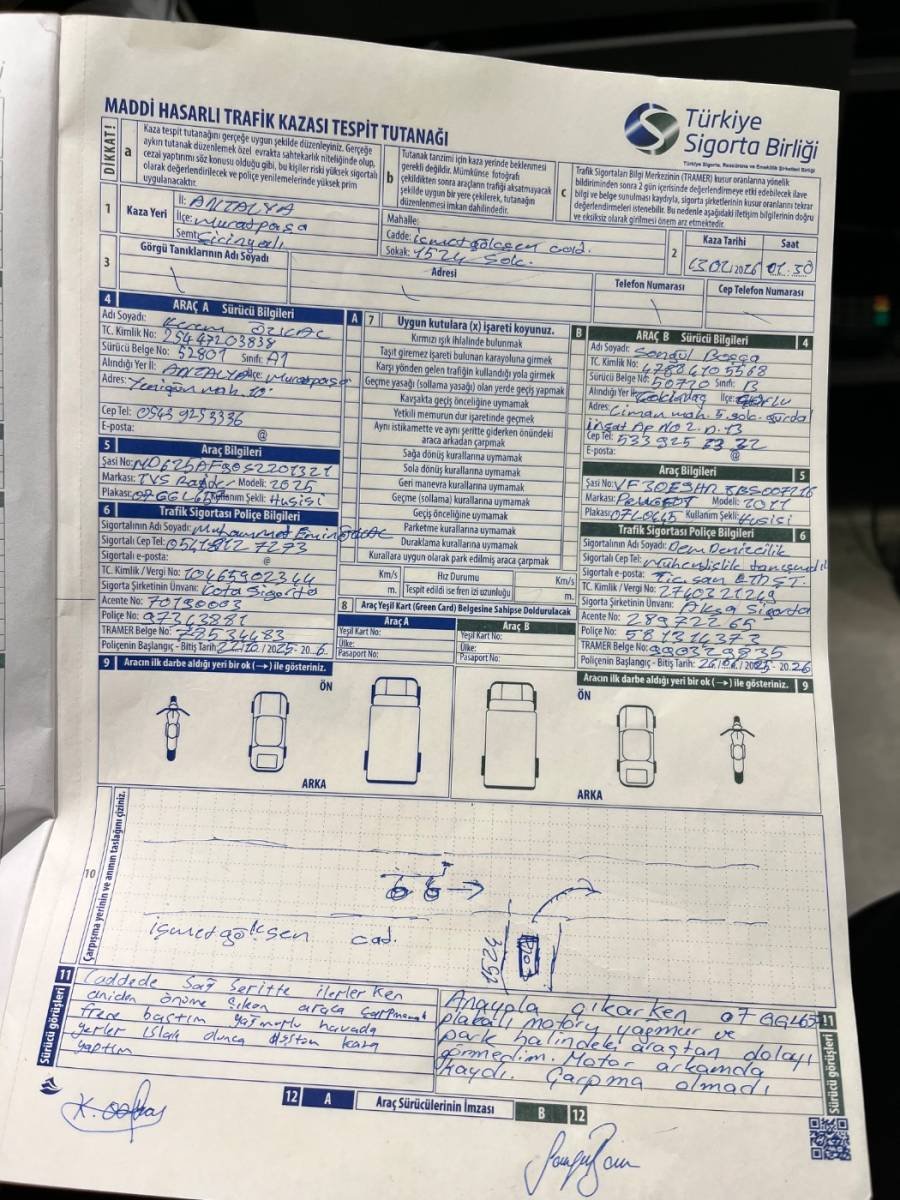 MADDİ HASARLI TRAFİK KAZASI TESPİT TUTANAĞI
Türkiye
Sigorta Birliği
Türkiye Sigorta, Reasürans ve Emeklilik Şirketleri Birliği
DİKKAT!
a
Kaza tespit tutanağını gerçeğe uygun şekilde düzenleyiniz. Gerçeğe
aykırı tutanak düzenlemek özel evrakta sahtekarlık niteliğinde olup,
cezai yaptırımı söz konusu olduğu gibi, bu kişiler riskli yüksek sigortalı
olarak değerlendirilecek ve poliçe yenilemelerinde yüksek prim
uygulanacaktır.
b
Tutanak tanzimi için kaza yerinde beklenmesi
gerekli değildir. Mümkünse fotoğraf
çekildikten sonra araçların trafiği aksatmayacak
şekilde uygun bir yere çekilerek, tutanağın
düzenlenmesi imkan dahilindedir.
c
Trafik Sigortaları Bilgi Merkezinin (TRAMER) kusur oranlarına yönelik
bildiriminden sonra 2 gün içerisinde değerlendirmeye etki edebilecek ilave
bilgi ve belge sunulması kaydıyla, sigorta şirketlerinin kusur oranlarını tekrar
değerlendirmeleri istenebilir. Bu nedenle aşağıdaki iletişim bilgilerinin doğru
ve eksiksiz olarak girilmesi önem arz etmektedir.
1 Kaza Yeri
İl: ANTALYA
İlçe: muratpaşa
Semt:
Mahalle:
Cadde: ismetgökşen cad.
Sokak: 1524 Sok.
2 Kaza Tarihi Saat
13/02/2026 01:30
3 Görgü Tanıklarının Adı Soyadı
Adresi
Telefon Numarası
Cep Telefon Numarası
4 ARAÇ A Sürücü Bilgileri
Adı Soyadı: Kerem
TC. Kimlik No: 25447203838
Sürücü Belge No: 52801 Sınıfı: A1
Alındığı Yer İl: ANTALYA İlçe: Muratpaşa
Adres: Yenigün mah.
Cep Tel: 0543 9253336
E-posta: @
5 Araç Bilgileri
Şasi No:
Markası: TVS Raider Modeli: 2025
Plakası: 07GGL657 Kullanım Şekli: Hususi
6 Trafik Sigortası Poliçe Bilgileri
Sigortalının Adı Soyadı: Muhammet Emin
Sigortalı Cep Tel: 7273
Sigortalı e-posta: @
TC. Kimlik / Vergi No: 10465902344
Sigorta Şirketinin Unvanı: Sigorta
Acente No: 70190003
Poliçe No: 97343881
TRAMER Belge No: 78534483
Poliçenin Başlangıç - Bitiş Tarih: 2025- 20.26
A 7 Uygun kutulara (x) işareti koyunuz. B
Kırmızı ışık ihlalinde bulunmak
Taşıt giremez işareti bulunan karayoluna girmek
Karşı yönden gelen trafiğin kullandığı yola girmek
Geçme yasağı (sollama yasağı) olan yerde geçiş yapmak
Kavşakta geçiş önceliğine uymamak
Yetkili memurun dur işaretinde geçmek
Aynı istikamette ve aynı şeritte giderken önündeki
araca arkadan çarpmak
Sağa dönüş kurallarına uymamak
Sola dönüş kurallarına uymamak
Geri manevra kurallarına uymamak
Geçme (sollama) kurallarına uymamak
Geçiş önceliğine uymamak
Parketme kurallarına uymamak
Duraklama kurallarına uymamak
Kurallara uygun olarak park edilmiş araca çarpmak
Km/s Hız Durumu Km/s
m. Tespit edildi ise fren izi uzunluğu m.
8 Araç Yeşil Kart (Green Card) Belgesine Sahipse Doldurulacak
Araç A Araç B
Yeşil Kart No: Yeşil Kart No:
Ülke: Ülke:
Pasaport No: Pasaport No:
ARAÇ B Sürücü Bilgileri 4
Adı Soyadı: Songül
TC. Kimlik No: 47884105568
Sürücü Belge No: 50720 Sınıfı: B
Alındığı Yer İl: İlçe:
Adres: Liman mah. 5. sok. Gürdal
İnşat Ap No 2. D. 13
Cep Tel: 533 925 22 32
E-posta: @
Araç Bilgileri 5
Şasi No:
Markası: Peugeot Modeli: 2011
Plakası: Kullanım Şekli: Hususi
Trafik Sigortası Poliçe Bilgileri 6
Sigortalının Adı Soyadı: Dem Denizcilik
Sigortalı Cep Tel: Mühendislik
Sigortalı e-posta:
TC. Kimlik / Vergi No: 2740321249
Sigorta Şirketinin Unvanı: Aksa Sigorta
Acente No: 28972265
Poliçe No: 581314373
TRAMER Belge No: 990329835
Poliçenin Başlangıç - Bitiş Tarih: 2025- 20.26
9 Aracın ilk darbe aldığı yeri bir ok (→) ile gösteriniz.
ÖN
ARKA
Aracın ilk darbe aldığı yeri bir ok (→) ile gösteriniz. 9
ÖN
ARKA
10 Çarpışma yerinin ve anının taslağını çiziniz.
ismetgökşen cad.
1524
11 Sürücü görüşleri
Caddede sağ şeritte ilerlerken
aniden önüme çıkan araca çarpmamak
frene bastım yağmurlu havada
yerler ıslak olunca düştüm kaza
yaptım
Anayola çıkarken 07 GGL657
plakalı motoru yağmur ve
park halindeki araçtan dolayı
görmedim. Motor arkamda
kaydı. Çarpma olmadı
11 Sürücü görüşleri
12 A Araç Sürücülerinin İmzası B 12